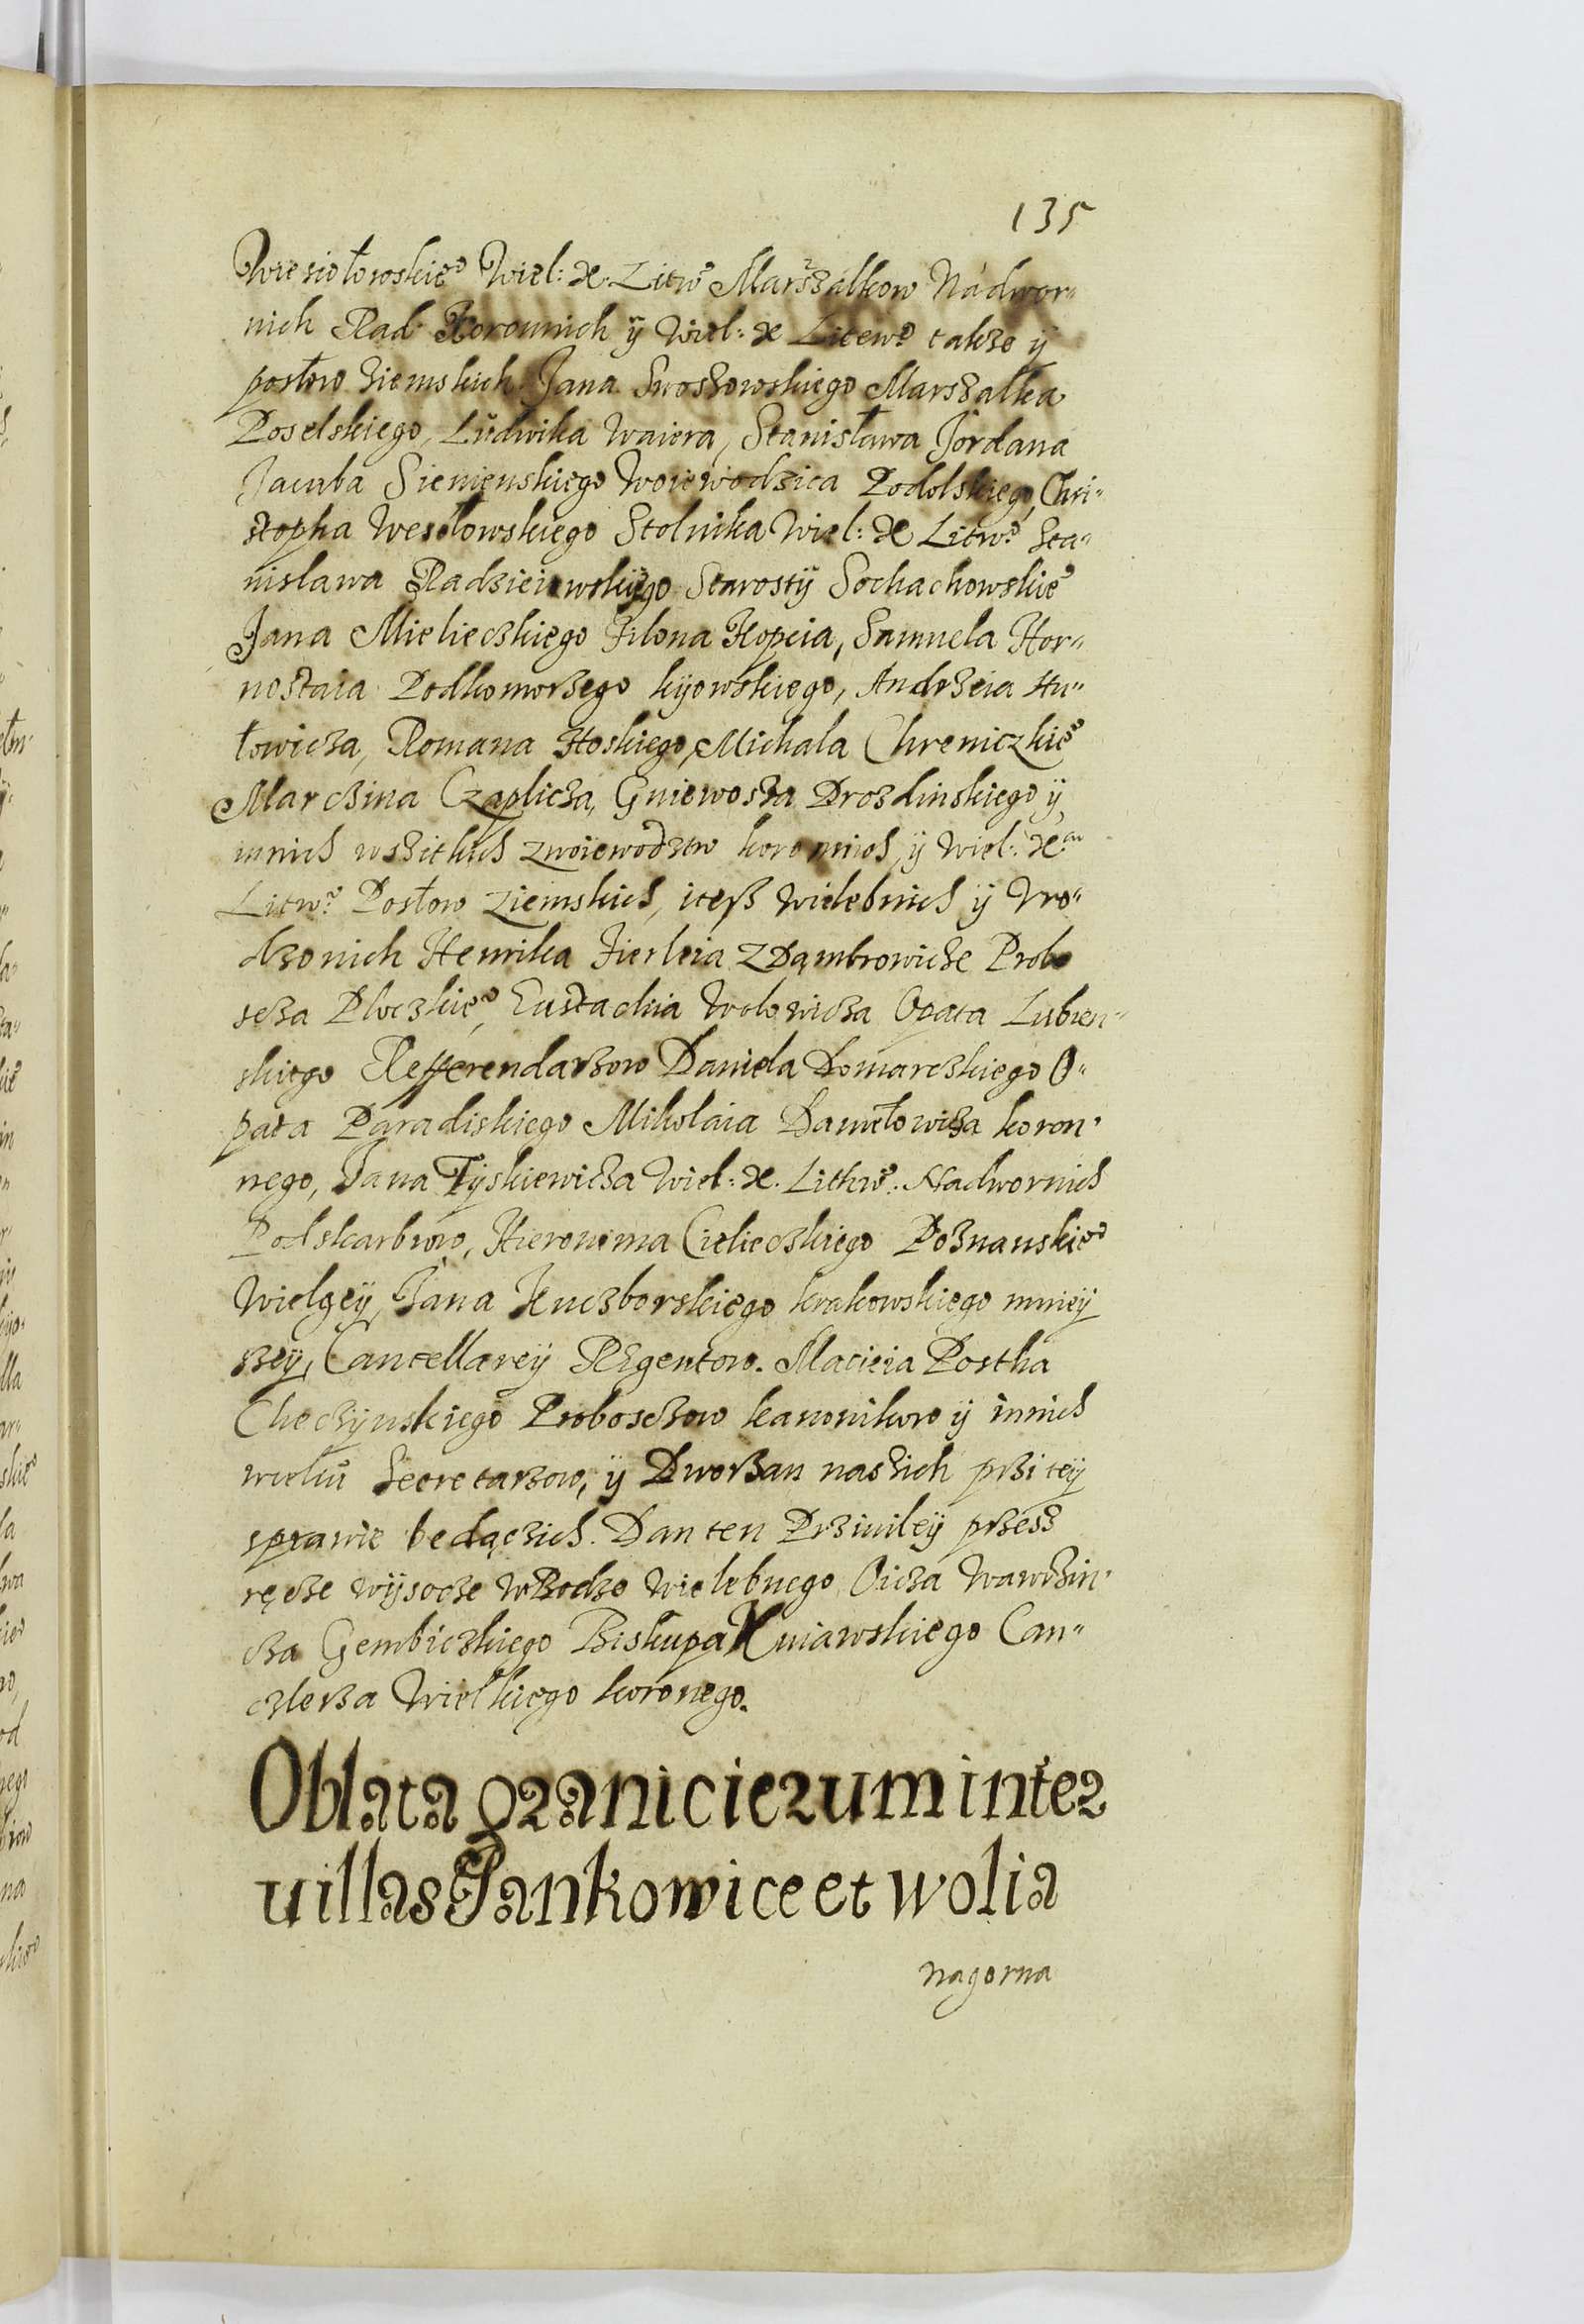 135
Wiesiołowskie° Wiel: X. Litw° Marszalkow Nadwor„
nich Rad Koronnich ÿ Wiel: X Litew° takze ÿ
posłow ziemskich Jana Swoszowskiego Marszalka
Poselskiego, Ludwika Waiera, Stanisława Jordana
Jacuba Sienienskiego Woiewodzica Podolskiego, Chri„
stopha Wesołowskiego Stolnika Wiel: X Litw° Sta„
nislawa Radzieiewskÿgo Starostÿ Sochachowskie°
Jana Mielieczkiego Filona Kopcia, Samuela Hor„
nostaia Podkomorzego kÿowskiego, Andrzeia Hu„
łowicza, Romana Hoskiego, Michala Chreniczkie°
Marczina Czaplicza, Gniewosza Drozdinskiego ÿ
innich wszitkich zwoiewodztw koronnich ÿ Wiel: X.
Litw° Posłow ziemskich, itesz wielebnich ÿ Vro„
dzonich Henrika Firleia z Dąmbrowicze Probo
scza Płoczkie°, Eustachia Wolowicza Opata Lubien„
skiego Refferendarzow Daniela Domareczkiego O„
pata Paradiskiego Mikolaia Daniełowicza koron„
nego, Jana Tÿskiewicza Wiel: X. Lithw°. Nadwornich
Podskarbiow, Hieronima Cielieczkiego Poznanskie°
Wielgeÿ, Jana Kuczborskiego krakowskiego mnieÿ
szeÿ, Cancellareÿ REgentow. Macieia Postka
Checzÿnskiego Proboszczow kanonikow ÿ innich
wielu Secretarzow, ÿ Dworzan naszich przi teÿ
sprawie bedączich. Dan ten Prziuileÿ przesz
ręcze wÿsocze Wbodze wielebnego Oicza Wawrzin„
cza Gembiczkiego Biskupa Kuiawskiego Can„
czlerza Wielkiego koronego.
Oblata graniciezum inter
uillas Pankowice et wolia
nagorna